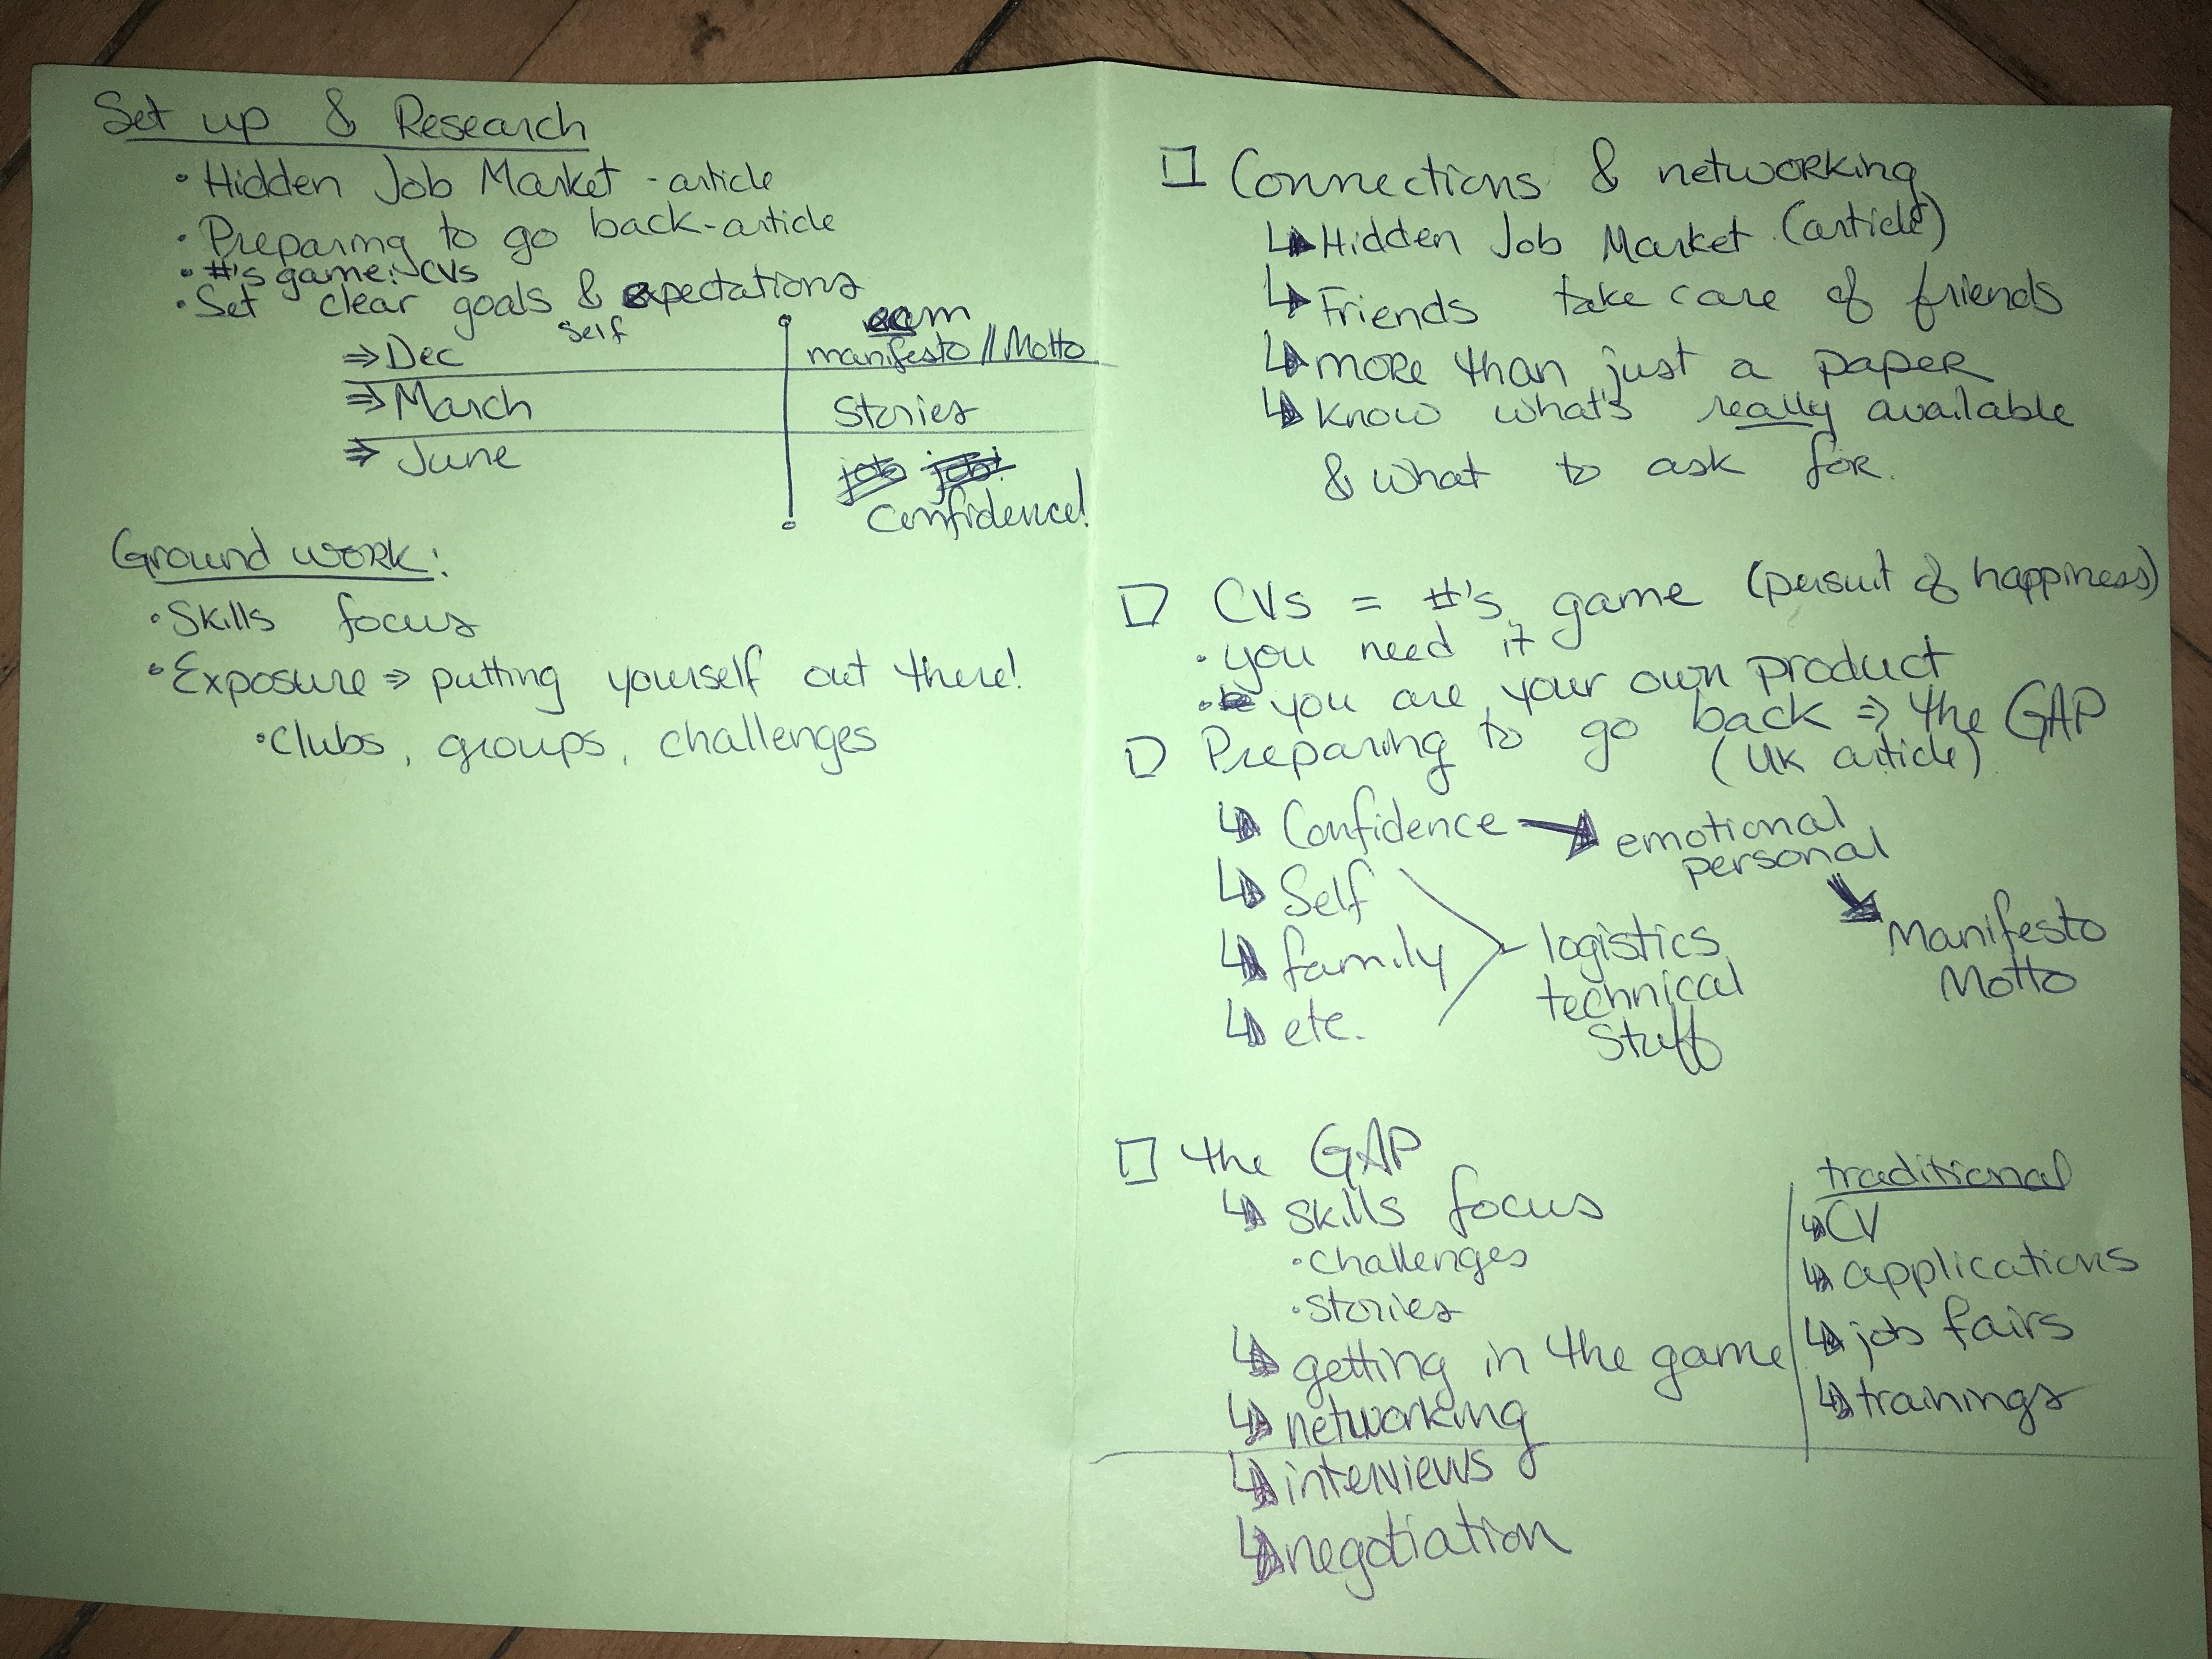 Set up & Research
• Hidden Job Market - article
• Preparing to go back - article
• #'s game: CVs
• Set clear goals & expectations
self
⇒ Dec
⇒ March
⇒ June
manifesto // Motto
Stories
Confidence!
Ground work:
• Skills focus
• Exposure ⇒ putting yourself out there!
• clubs, groups, challenges
□ Connections & networking
↳ Hidden Job Market (article)
↳ Friends take care of friends
↳ more than just a paper
↳ know what's really available
& what to ask for.
□ CVs = #'s game (persuit of happiness)
• you need it
• you are your own product
□ Preparing to go back ⇒ the GAP
(UK article)
↳ Confidence → emotional
personal
↳ Self
↳ family
↳ etc.
logistics
technical
stuff
→ Manifesto
Motto
□ the GAP
↳ skills focus
• challenges
• stories
↳ getting in the game
↳ networking
↳ interviews
↳ negotiation
traditional
↳ CV
↳ applications
↳ job fairs
↳ trainings